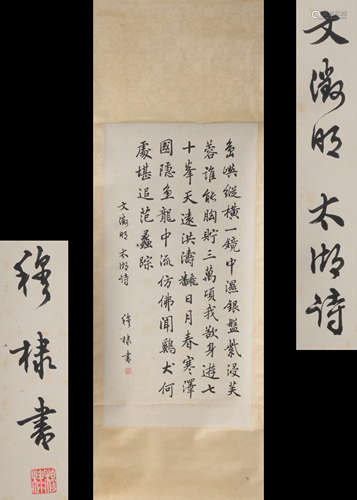 島嶼縱橫一鏡中濕銀盤紫浸芙
蓉誰能胸貯三萬頃我欲身遊七
十峯天遠洪濤飜日月春寒澤
國隱魚龍中流仿佛聞鷄犬何
處堪追范蠡踪
文徵明太湖詩
穆棣書
文徵明太湖詩
穆棣書